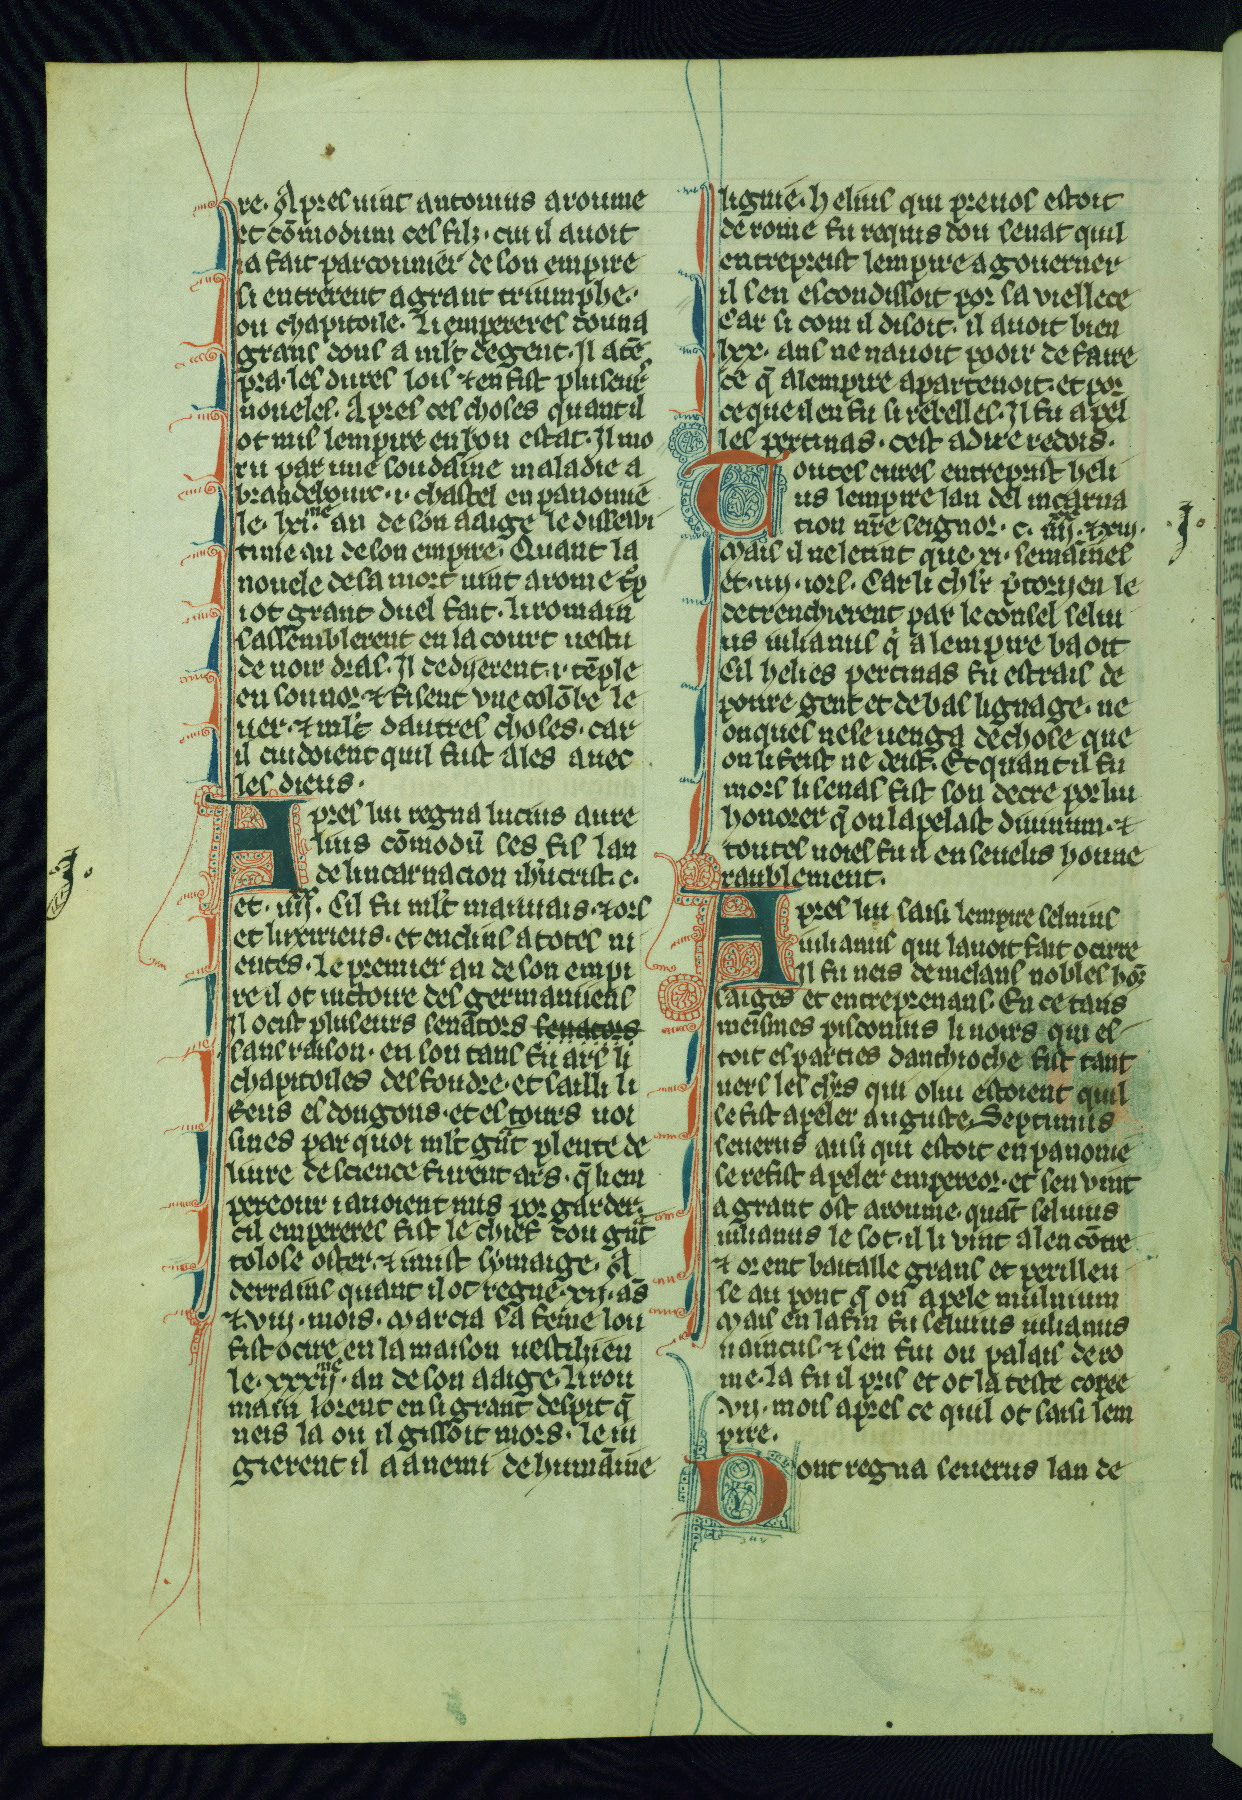 re. Apres uint antonius a roume
et cōmodum ces filz. cui il auoit
ia fait parconnier de son empire
si entrerent a grant triumphe.
ou chapitoile. Li empereres douna
grans dons a ml't de gent. Il atē
pra. les dures lois ⁊ en fist pluseurs
noueles. Apres ces choses quant il
ot mis lempire en bon estat. Il mo
ru par une soudaine maladie a
brandebourc. i. chastel en panonnie
le. lxi.me an de son aaige le dissewi
time an de son empire. Quant la
nouele de sa mort uint a rome
i ot grant duel fait. li romain
sassemblerent en la court uestu
de noir dras. Il dedyerent. i. tēple
en sonnor. ⁊ fisent vne colōbe le
uer. ⁊ ml't dautres choses. car
il cuidoient quil fust ales auec
les dieus.
Apres lui regna lucius aure
lius cōmodū ses fil lan
de lincarnacion ihūcrist. c.
et. iiij. Cil fu ml't mauuais. ⁊ ors
et luxurieus. et enclins a totes ui
eutes. Le premier an de son empi
re il ot uictoire des germaniens
Il ocist pluseurs senators senators
sans raison. en son tans fu ars li
chapitoiles des foudre. et sailli li
feus es dongons. et es tours uoi
sines par quoi ml't gūt plente de
liure de science furent ars. q̄ li em
pereour i auoient mis por garder.
cil empereres fist le chief dou gūt
colose oster. ⁊ i mist symaige. A
derrains quant il ot regne. xij. ās
⁊ viij. mois. Marcia sa feme lou
fist ocire en la maison uestilyien
le. xxxij.me an de son aaige. li rou
main lorent en si grant despit q̄
neis la ou il gissoit mors. le iu
gierent il a anemi de humaine
lignie. helius qui preuos estoit
de rome fu requis dou senat quil
entrepreist lempire a gouerner
il sen escondissoit por sa viellece
Car si com il disoit. il auoit bien
lxx. ans ne nauoit pooir de faire
ce q̄ a lempire apartenoit. et por
ce que il en fu si rebelles. Il fu apel
les pertinas. cest a dire redois.
Toutes eures entreprist heli
us lempire lan del incarna
tion nr̄e seignor. c. iiij. ⁊ xiij.
Mais il ne le tint que. xi. semaines
et. iiij. iors. Car li chl'r p̄toryen le
detrenchierent par le consel seluu
us iulianus q̄ a lempire baoit
Cil helies pertinas fu estrais de
poure gent et de bas lignage. ne
onques ne se uenga de chose que
on li feist ne deist. Et quant il fu
mors li senas fist son decre por lui
honorer q̄ on lapelast diuinum. ⁊
toutes uoies fu il enseuelis honne
raublement.
Apres lui saisi lempire seluius
iulianus qui lauoit fait ocirre
Il fu neis de melans nobles hōs
saiges et entreprenans. En ce tans
meismes pisconius li noirs qui es
toit es parties danthioche fist tant
uers les ch'rs qui o lui estoient quil
se fist apeler auguste. Septimus
seuerus ausi qui estoit en panonie
se refist apeler empereor. et sen vint
a grant ost a roume. quāt seluius
iulianus le sot. il li vint a lencōtre
⁊ orent bataille grans et perilleu
se au pont q̄ on apele muluium
Mais en la fin fu seluius iulianus
uaincus. ⁊ sen fui ou palais de ro
me. la fu il pris et ot la teste copee
vij. mois apres ce quil ot saisi lem
pire.
Dont regna seuerus lan de